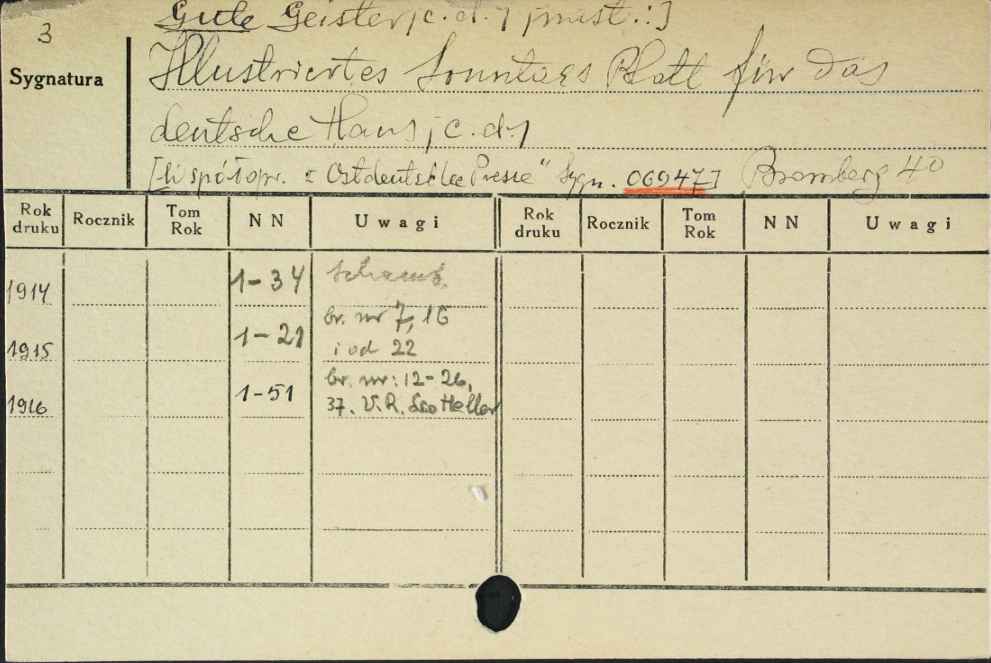 Gute Geister; c. d. ; [nast.:]
3
Sygnatura
Illustriertes Sonntags Blatt für das
deutsche Haus; c. d.;
[Współopr. z "Ostdeutsche Presse" Sygn. 06947] Bromberg 40
Rok druku Rocznik Tom Rok N N Uwagi Rok druku Rocznik Tom Rok N N Uwagi
1914 1-34
1915 1-21 br. nr 7, 16
i od 22
1916 1-51 br. nr: 12-26,
37. V. R. Leo Heller